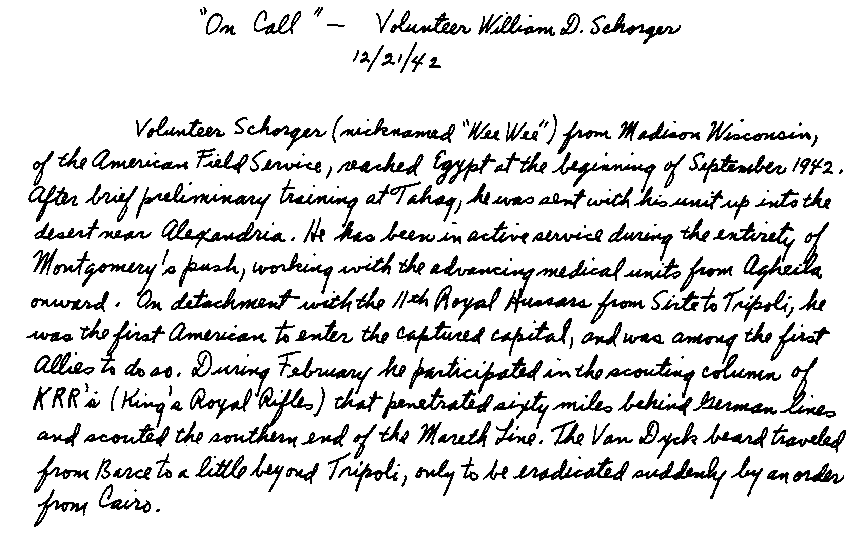 "On Call" – Volunteer William D. Schorger
12/21/42
Volunteer Schorger (nicknamed "Wee Wee") from Madison Wisconsin,
of the American Field Service, reached Egypt at the beginning of September 1942.
After brief preliminary training at Tahag, he was sent with his unit up into the
desert near Alexandria. He has been in active service during the entirety of
Montgomery's push, working with the advancing medical units from Agheila
onward. On detachment with the 11th Royal Hussars from Sirte to Tripoli, he
was the first American to enter the captured capital, and was among the first
Allies to do so. During February he participated in the scouting column of
KRR's (King's Royal Rifles) that penetrated sixty miles behind German lines
and scouted the southern end of the Mareth Line. The Van Dyck beard traveled
from Barce to a little beyond Tripoli, only to be eradicated suddenly by an order
from Cairo.